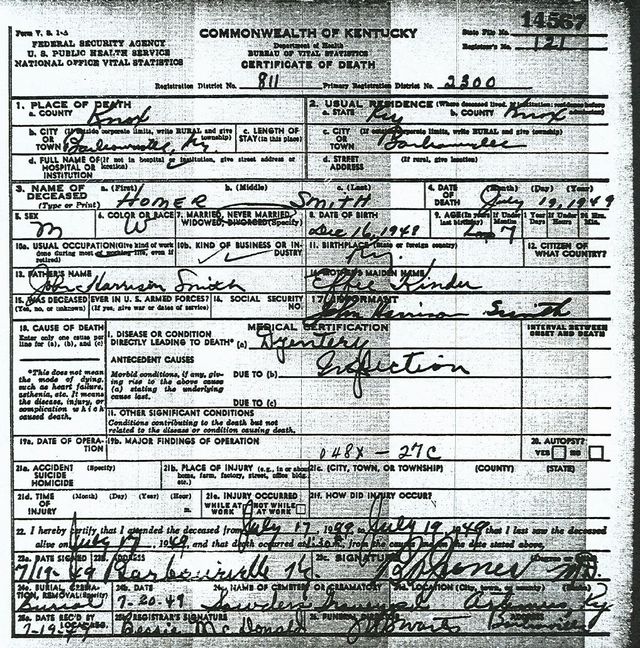 Form V. S. 1-A
FEDERAL SECURITY AGENCY
U. S. PUBLIC HEALTH SERVICE
NATIONAL OFFICE VITAL STATISTICS
COMMONWEALTH OF KENTUCKY
Department of Health
BUREAU OF VITAL STATISTICS
CERTIFICATE OF DEATH
14567
State File No.
Registrar's No. 121
Registration District No. 811 Primary Registration District No. 2300
1. PLACE OF DEATH
a. COUNTY Knox
2. USUAL RESIDENCE (Where deceased lived. If institution: residence before
a. STATE Ky b. COUNTY Knox
b. CITY (If outside corporate limits, write RURAL and give
OR township)
TOWN Barbourville, Ky
c. LENGTH OF
STAY (in this place)
c. CITY (If outside corporate limits, write RURAL and give township)
OR
TOWN Barbourville
d. FULL NAME OF (If not in hospital or institution, give street address or
HOSPITAL OR location)
INSTITUTION
d. STREET (If rural, give location)
ADDRESS
3. NAME OF a. (First) b. (Middle) c. (Last)
DECEASED
(Type or Print) HOMER SMITH
4. DATE (Month) (Day) (Year)
OF
DEATH July 19, 1949
5. SEX M
6. COLOR OR RACE W
7. MARRIED, NEVER MARRIED,
WIDOWED, DIVORCED (Specify)
8. DATE OF BIRTH
Dec 16, 1948
9. AGE (In years If Under 1 Year If Under 24 Hrs.
7
10a. USUAL OCCUPATION (Give kind of work
done during most of working life, even if
retired)
10b. KIND OF BUSINESS OR IN-
DUSTRY
11. BIRTHPLACE (State or foreign country)
Ky.
12. CITIZEN OF
WHAT COUNTRY?
13. FATHER'S NAME
John Harrison Smith
14. MOTHER'S MAIDEN NAME
Effie Kinder
15. WAS DECEASED EVER IN U. S. ARMED FORCES?
(Yes, no, or unknown) (If yes, give war or dates of service)
16. SOCIAL SECURITY
NO.
17. INFORMANT
John Harrison Smith
18. CAUSE OF DEATH
Enter only one cause per
line for (a), (b), and (c)
*This does not mean
the mode of dying,
such as heart failure,
asthenia, etc. It means
the disease, injury, or
complication which
caused death.
MEDICAL CERTIFICATION
I. DISEASE OR CONDITION
DIRECTLY LEADING TO DEATH* (a) Dysentery
ANTECEDENT CAUSES
Morbid conditions, if any, giv-
ing rise to the above cause
(a) stating the underlying
cause last.
DUE TO (b) Infection
DUE TO (c)
INTERVAL BETWEEN
ONSET AND DEATH
II. OTHER SIGNIFICANT CONDITIONS
Conditions contributing to the death but not
related to the disease or condition causing death.
19a. DATE OF OPERA-
TION
19b. MAJOR FINDINGS OF OPERATION
048X - 27C
20. AUTOPSY?
YES NO
21a. ACCIDENT (Specify)
SUICIDE
HOMICIDE
21b. PLACE OF INJURY (e.g., in or about
home, farm, factory, street, office bldg.
etc.)
21c. (CITY, TOWN, OR TOWNSHIP) (COUNTY) (STATE)
21d. TIME (Month) (Day) (Year) (Hour)
OF
INJURY m.
21e. INJURY OCCURRED
WHILE AT NOT WHILE
WORK AT WORK
21f. HOW DID INJURY OCCUR?
22. I hereby certify that I attended the deceased from July 17, 1949, to July 19, 1949, that I last saw the deceased
alive on July 17, 1949, and that death occurred at 1:30 m., from the causes and on the date stated above.
23a. DATE SIGNED
7/19-49
23b. ADDRESS
Barbourville Ky.
23c. SIGNATURE
Jones M.D.
24a. BURIAL, CREMA-
TION, REMOVAL (Specify)
Burial
24b. DATE
7-20-49
24c. NAME OF CEMETERY OR CREMATORY
24d. LOCATION (City, town, or county) (State)
Artemus, Ky
25a. DATE REC'D BY
LOCAL REG.
7-19-49
25b. REGISTRAR'S SIGNATURE
Bessie McDonald
ADDRESS
Barbourville